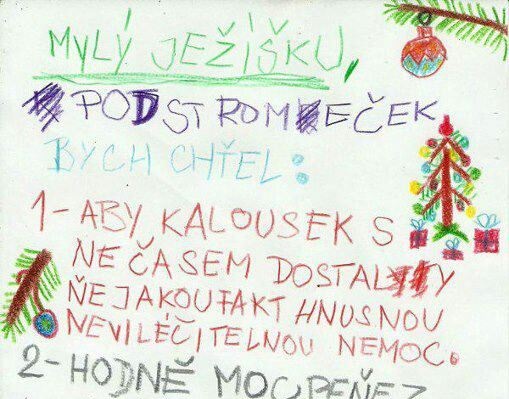 MYLÝ JEŽÍŠKU,
POD STROMEČEK
BYCH CHŤEL:
1-ABY KALOUSEK S
NEČASEM DOSTALY
ŇEJAKOU FAKT HNUSNOU
NEVILÉČITELNOU NEMOC.
2-HODNĚ MOC PEŇEZ